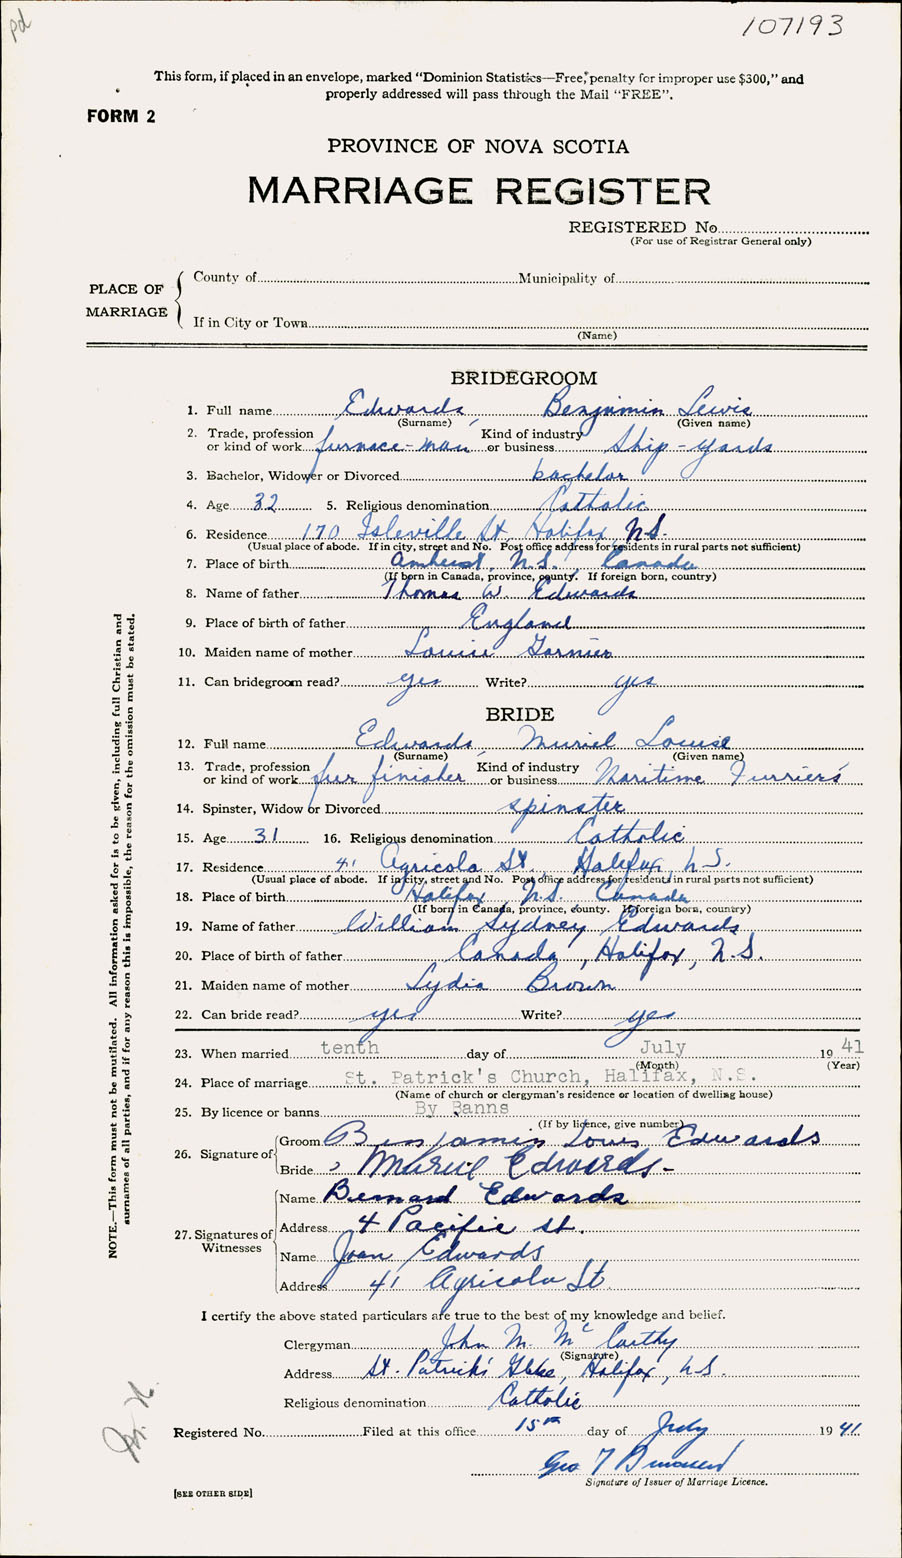 pd
107193
This form, if placed in an envelope, marked “Dominion Statistics—Free, penalty for improper use $300,” and
properly addressed will pass through the Mail “FREE”.
FORM 2
PROVINCE OF NOVA SCOTIA
MARRIAGE REGISTER
REGISTERED No.
(For use of Registrar General only)
PLACE OF MARRIAGE
County of Municipality of
If in City or Town
(Name)
BRIDEGROOM
1. Full name Edwards, Benjamin Lewis
(Surname) (Given name)
2. Trade, profession or kind of work furnace-man Kind of industry or business Ship-yards
3. Bachelor, Widower or Divorced bachelor
4. Age 32 5. Religious denomination Catholic
6. Residence 170 Isleville St. Halifax, N.S.
(Usual place of abode. If in city, street and No. Post office address for residents in rural parts not sufficient)
7. Place of birth Amherst, N.S., Canada
(If born in Canada, province, county. If foreign born, country)
8. Name of father Thomas W. Edwards
9. Place of birth of father England
10. Maiden name of mother Louise
11. Can bridegroom read? yes Write? yes
BRIDE
12. Full name Edwards, Muriel Louise
(Surname) (Given name)
13. Trade, profession or kind of work fur finisher Kind of industry or business Maritime Furriers
14. Spinster, Widow or Divorced spinster
15. Age 31 16. Religious denomination Catholic
17. Residence 41 Agricola St. Halifax, N.S.
(Usual place of abode. If in city, street and No. Post office address for residents in rural parts not sufficient)
18. Place of birth Halifax, N.S. Canada
(If born in Canada, province, county. If foreign born, country)
19. Name of father William Sydney Edwards
20. Place of birth of father Canada, Halifax, N.S.
21. Maiden name of mother Lydia Brown
22. Can bride read? yes Write? yes
23. When married tenth day of July 1941
(Month) (Year)
24. Place of marriage St. Patrick's Church, Halifax, N.S.
(Name of church or clergyman's residence or location of dwelling house)
25. By licence or banns By Banns
(If by licence, give number)
26. Signature of
Groom Benjamin Louis Edwards
Bride Muriel Edwards
27. Signatures of Witnesses
Name Bernard Edwards
Address 4 Pacific st.
Name Joan Edwards
Address 41 Agricola St
I certify the above stated particulars are true to the best of my knowledge and belief.
Clergyman John M. McCarthy
(Signature)
Address St. Patrick's Glebe, Halifax, N.S.
Religious denomination Catholic
Registered No. Filed at this office 15th day of July 1941.
Geo T
Signature of Issuer of Marriage Licence.
[SEE OTHER SIDE]
NOTE.—This form must not be mutilated. All information asked for is to be given, including full Christian and
surnames of all parties, and if for any reason this is impossible, the reason for the omission must be stated.